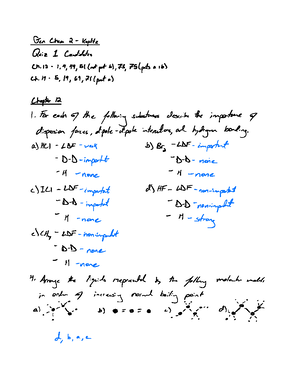 Gen Chem 2 -
Quiz 1 Candidates
Ch. 12 - 1, 9, 49, 51 (not pt b), 73, 75 (pts a + b)
Ch. 14 - 5, 19, 69, 71 (part a)
Chapter 12
1. For each of the following substances describe the importance of
dispersion forces, dipole-dipole interactions, and hydrogen bonding.
a) HCl - LDF - weak
- D-D - important
- H - none
b) Br2 - LDF - important
- D-D - none
- H - none
c) ICl - LDF - important
- D-D - important
- H - none
d) HF - LDF - nonimportant
- D-D - nonimportant
- H - strong
e) CH4 - LDF - nonimportant
- D-D - none
- H - none
Arrange the liquids represented by the following molecular models
in order of increasing normal boiling point
a) b) c) d)
d, b, a, c